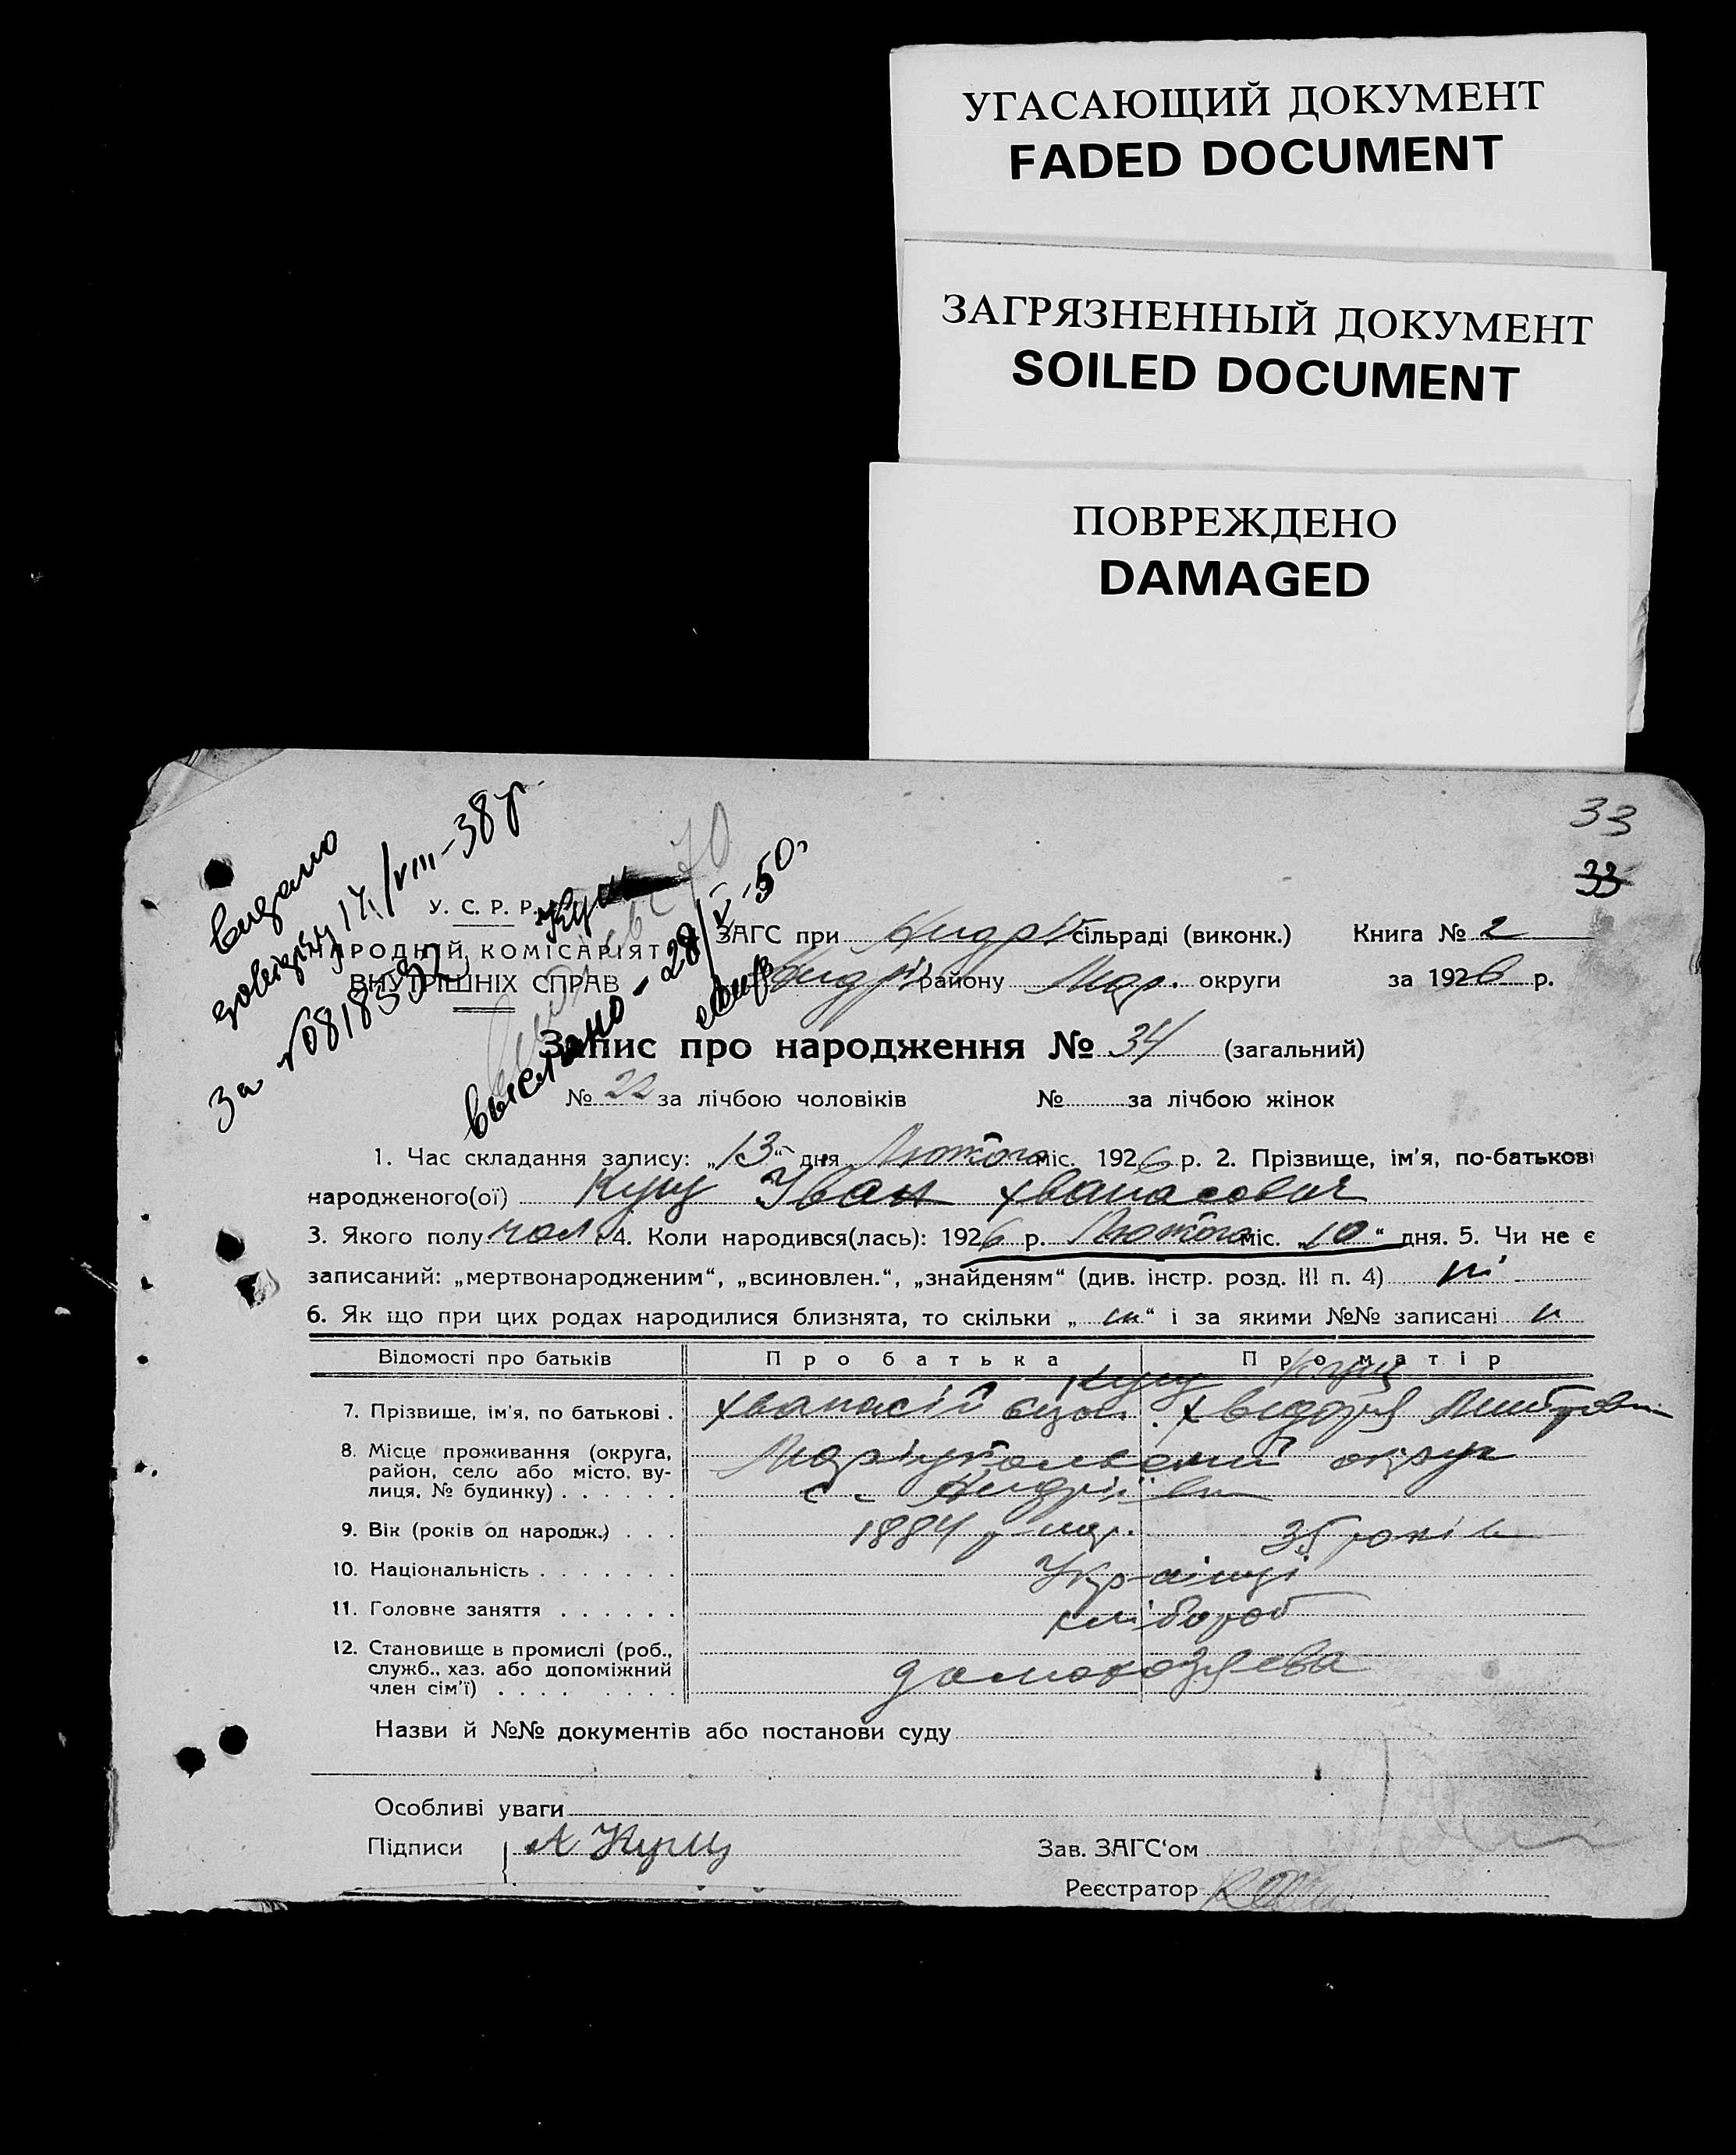 УГАСАЮЩИЙ ДОКУМЕНТ
FADED DOCUMENT
ЗАГРЯЗНЕННЫЙ ДОКУМЕНТ
SOILED DOCUMENT
ПОВРЕЖДЕНО
DAMAGED
33
33
видано
/VIII-38 р
За №
выслано - 28/V-50 г
У. С. Р. Р.
НАРОДНІЙ КОМІСАРІЯТ
ВНУТРІШНІХ СПРАВ
ЗАГС при Андрі сільраді (виконк.) Книга № 2
Андрі району Мар. округи за 1926 р.
Запис про народження № 34 (загальний)
№ 22 за лічбою чоловіків № за лічбою жінок
1. Час складання запису: „13“ дня Лютого міс. 1926 р. 2. Прізвище, ім'я, по-батькові
народженого(ої) Кущ Іван Хванасович
3. Якого полу чол. 4. Коли народився(лась): 1926 р. Лютого міс. „10“ дня. 5. Чи не є
записаний: „мертвонародженим“, „всиновлен.“, „знайденям“ (див. інстр. розд. III п. 4) ні
6. Як що при цих родах народилися близнята, то скільки „ “ і за якими №№ записані
Відомості про батьків Про батька Про матір
Кущ Кущ
7. Прізвище, ім'я, по батькові . Хванасій Хведора
8. Місце проживання (округа, район, село або місто, вулиця, № будинку) . . . . . . Маріупольский округ
с. Андріївка
9. Вік (років од народж.) . . . 1884 р нар. 35 років
10. Національність . . . . . . . Українці
11. Головне заняття . . . . . . хлібороб
12. Становище в промислі (роб., служб., хаз. або допоміжний член сім'ї) . . . . . . . . домохозяева
Назви й №№ документів або постанови суду
Особливі уваги
Підписи А Кущ Зав. ЗАГС'ом
Реєстратор